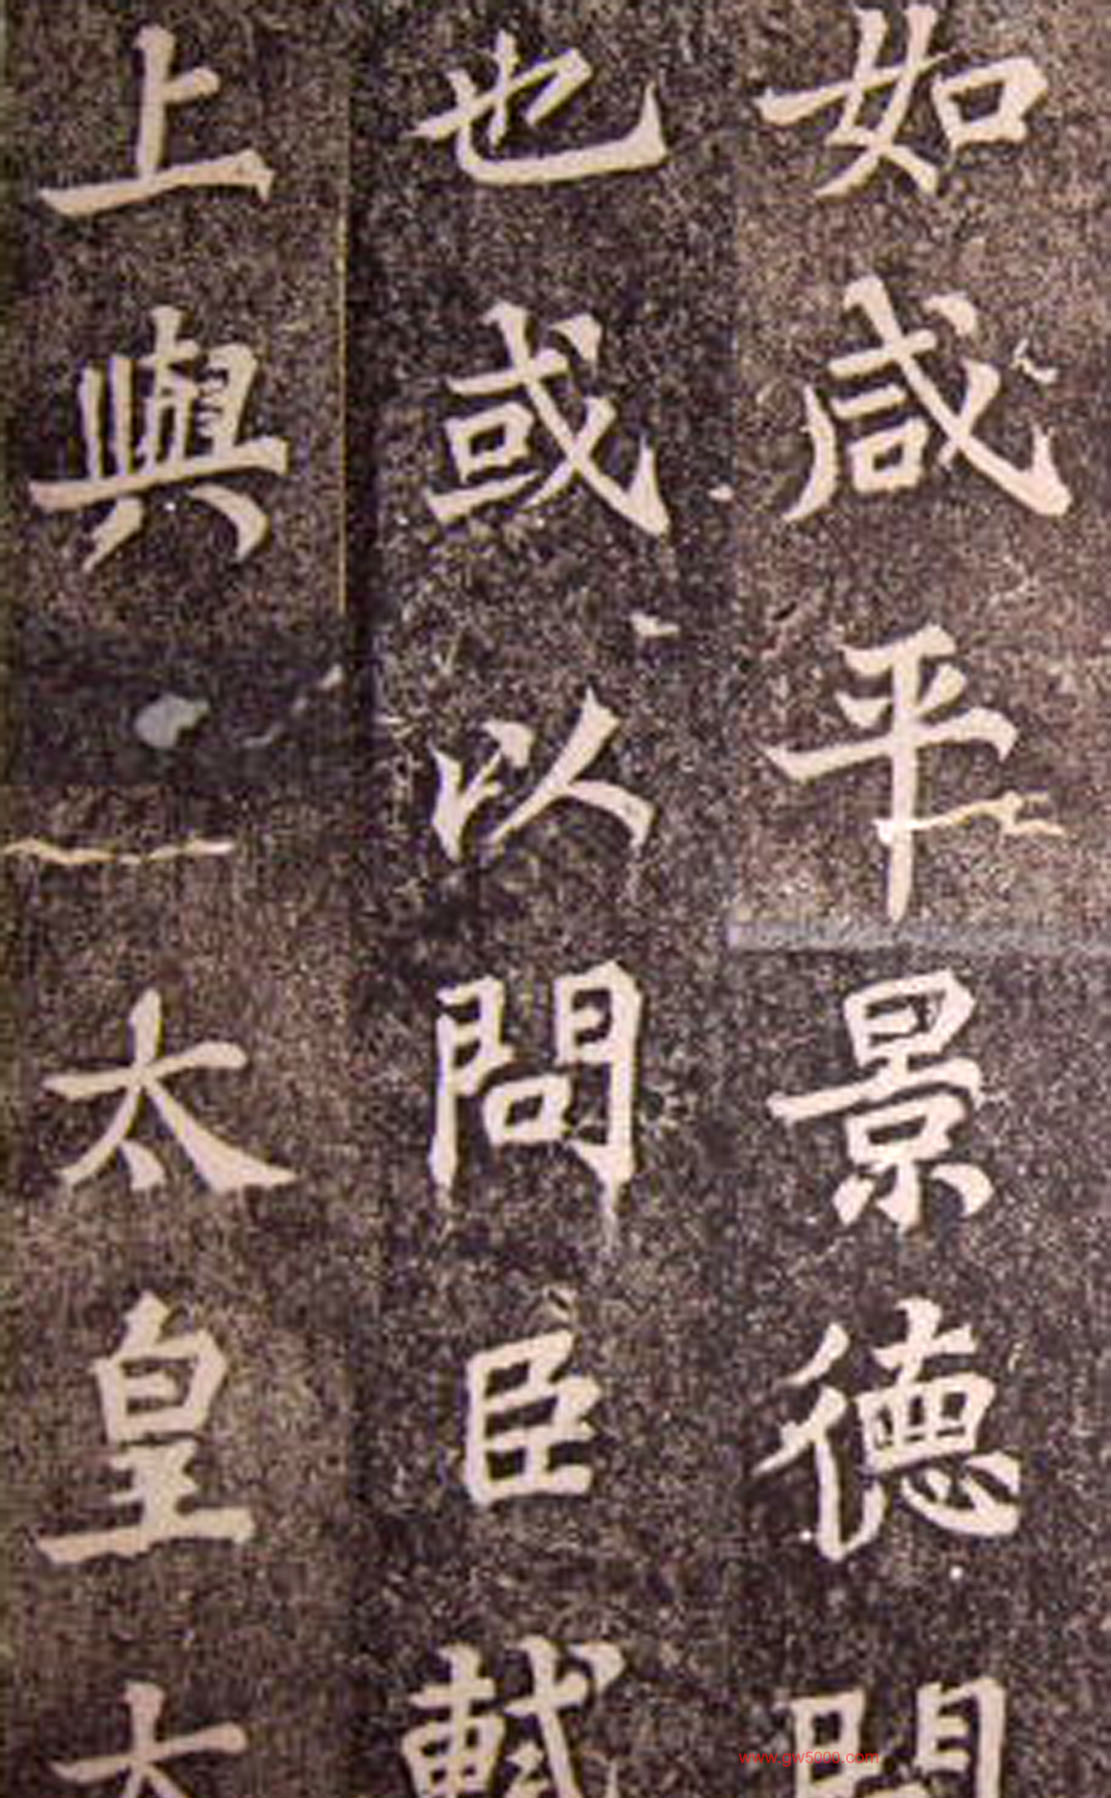 如咸平景德間
也或以問臣軾
上與太皇太
www.gw5000.com